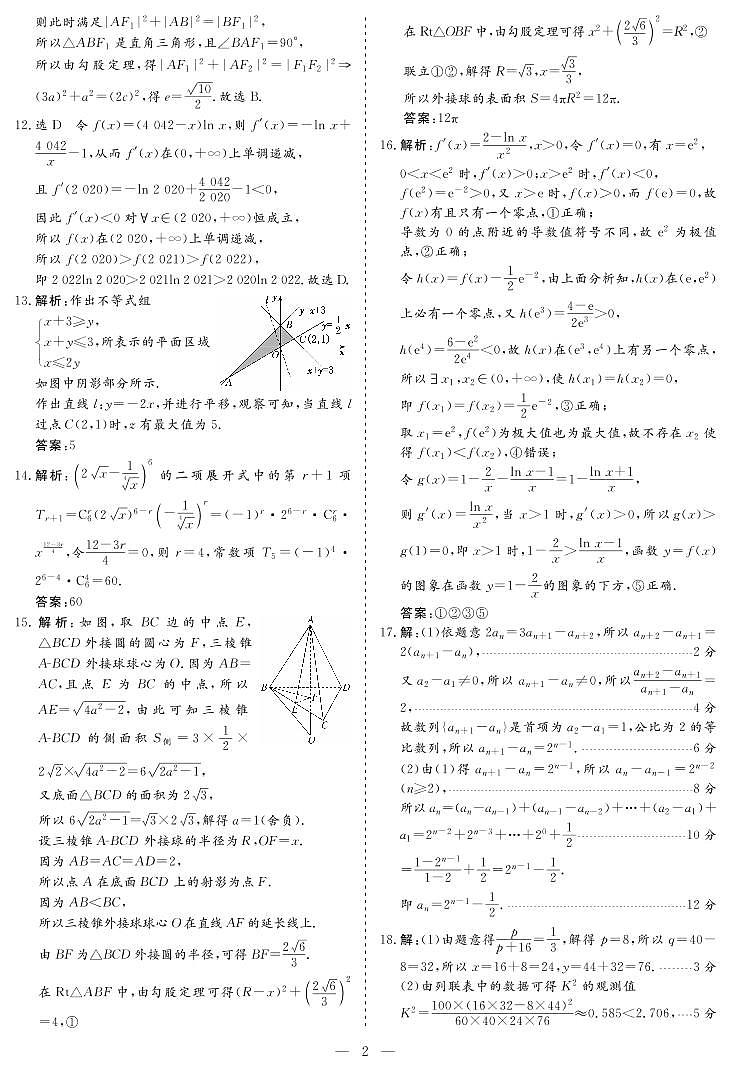 则此时满足|AF₁|²+|AB|²=|BF₁|²,
所以△ABF₁是直角三角形,且∠BAF₁=90°,
所以由勾股定理,得|AF₁|²+|AF₂|²=|F₁F₂|²⇒
(3a)²+a²=(2c)²,得e=√10/2.故选B.
12.选D 令f(x)=(4 042−x)ln x,则f′(x)=−ln x+
4 042/x−1,从而f′(x)在(0,+∞)上单调递减,
且f′(2 020)=−ln 2 020+4 042/2 020−1<0,
因此f′(x)<0对∀x∈(2 020,+∞)恒成立,
所以f(x)在(2 020,+∞)上单调递减,
所以f(2 020)>f(2 021)>f(2 022),
即2 022ln 2 020>2 021ln 2 021>2 020ln 2 022.故选D.
13.解析:作出不等式组
{x+3⩾y,
x+y⩽3,所表示的平面区域
x⩽2y
如图中阴影部分所示.
作出直线l:y=−2x,并进行平移,观察可知,当直线l
过点C(2,1)时,z有最大值为5.
答案:5
l y
y x+3
B
y=1/2 x
C(2,1)
O
x
A
x+y=3
14.解析:(2√x−1/⁴√x)⁶的二项展开式中的第r+1项
Tᵣ₊₁=C₆ʳ(2√x)⁶⁻ʳ(−1/⁴√x)ʳ=(−1)ʳ·2⁶⁻ʳ·C₆ʳ·
x^((12−3r)/4),令(12−3r)/4=0,则r=4,常数项T₅=(−1)⁴·
2⁶⁻⁴·C₆⁴=60.
答案:60
15.解析:如图,取BC边的中点E,
△BCD外接圆的圆心为F,三棱锥
A-BCD外接球球心为O.因为AB=
AC,且点E为BC的中点,所以
AE=√(4a²−2),由此可知三棱锥
A-BCD的侧面积S侧=3×1/2×
2√2×√(4a²−2)=6√(2a²−1),
A
B
D
E
F
C
O
又底面△BCD的面积为2√3,
所以6√(2a²−1)=√3×2√3,解得a=1(舍负).
设三棱锥A-BCD外接球的半径为R,OF=x.
因为AB=AC=AD=2,
所以点A在底面BCD上的射影为点F.
因为AB<BC,
所以三棱锥外接球球心O在直线AF的延长线上.
由BF为△BCD外接圆的半径,可得BF=2√6/3.
在Rt△ABF中,由勾股定理可得(R−x)²+(2√6/3)²
=4,①
在Rt△OBF中,由勾股定理可得x²+(2√6/3)²=R²,②
联立①②,解得R=√3,x=√3/3,
所以外接球的表面积S=4πR²=12π.
答案:12π
16.解析:f′(x)=(2−ln x)/x²,x>0,令f′(x)=0,有x=e²,
0<x<e²时,f′(x)>0;x>e²时,f′(x)<0,
f(e²)=e⁻²>0,又x>e时,f(x)>0,而f(e)=0,故
f(x)有且只有一个零点,①正确;
导数为0的点附近的导数值符号不同,故e²为极值
点,②正确;
令h(x)=f(x)−1/2e⁻²,由上面分析知,h(x)在(e,e²)
上必有一个零点,又h(e³)=(4−e)/2e³>0,
h(e⁴)=(6−e²)/2e⁴<0,故h(x)在(e³,e⁴)上有另一个零点,
所以∃x₁,x₂∈(0,+∞),使h(x₁)=h(x₂)=0,
即f(x₁)=f(x₂)=1/2e⁻²,③正确;
取x₁=e²,f(e²)为极大值也为最大值,故不存在x₂使
得f(x₁)<f(x₂),④错误;
令g(x)=1−2/x−(ln x−1)/x=1−(ln x+1)/x,
则g′(x)=ln x/x²,当x>1时,g′(x)>0,所以g(x)>
g(1)=0,即x>1时,1−2/x>(ln x−1)/x,函数y=f(x)
的图象在函数y=1−2/x的图象的下方,⑤正确.
答案:①②③⑤
17.解:(1)依题意2aₙ=3aₙ₊₁−aₙ₊₂,所以aₙ₊₂−aₙ₊₁=
2(aₙ₊₁−aₙ),……2分
又a₂−a₁≠0,所以aₙ₊₁−aₙ≠0,所以(aₙ₊₂−aₙ₊₁)/(aₙ₊₁−aₙ)=
2,……4分
故数列{aₙ₊₁−aₙ}是首项为a₂−a₁=1,公比为2的等
比数列,所以aₙ₊₁−aₙ=2ⁿ⁻¹.……6分
(2)由(1)得aₙ₊₁−aₙ=2ⁿ⁻¹,所以aₙ−aₙ₋₁=2ⁿ⁻²
(n⩾2),……8分
所以aₙ=(aₙ−aₙ₋₁)+(aₙ₋₁−aₙ₋₂)+…+(a₂−a₁)+
a₁=2ⁿ⁻²+2ⁿ⁻³+…+2⁰+1/2……10分
=(1−2ⁿ⁻¹)/(1−2)+1/2=2ⁿ⁻¹−1/2.
即aₙ=2ⁿ⁻¹−1/2.……12分
18.解:(1)由题意得p/(p+16)=1/3,解得p=8,所以q=40−
8=32,所以x=16+8=24,y=44+32=76.……3分
(2)由列联表中的数据可得K²的观测值
K²=100×(16×32−8×44)²/(60×40×24×76)≈0.585<2.706,…5分
— 2 —